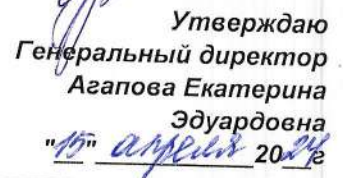 Утверждаю
Генеральный директор
Агапова Екатерина
Эдуардовна
"15" апреля 2024г